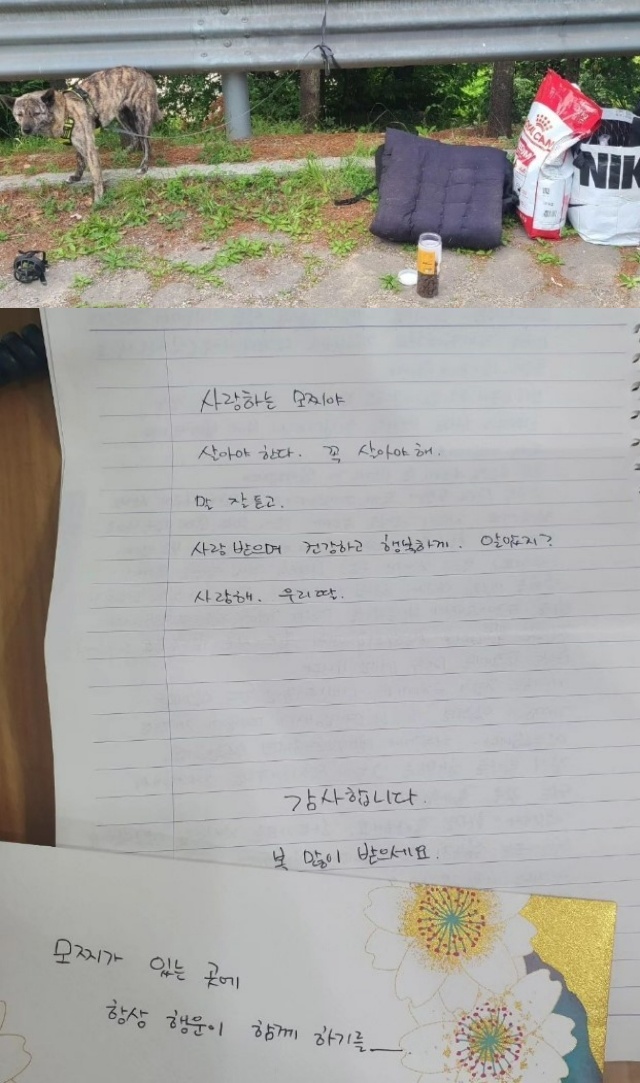 ROYAL CANIN
NIK
사랑하는 모찌야
살아야 한다. 꼭 살아야 해.
말 잘 듣고.
사랑 받으며 건강하고 행복하게. 알았지?
사랑해. 우리 딸.
감사합니다.
복 많이 받으세요.
모찌가 있는 곳에
항상 행운이 함께 하기를